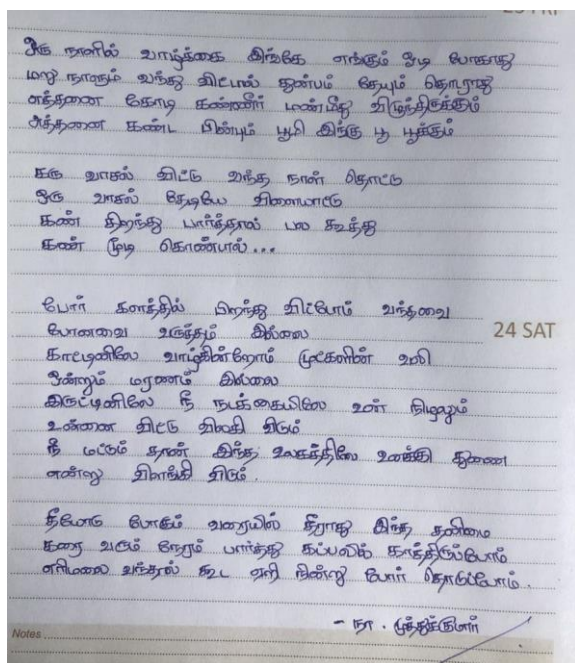 ஒரு நாளில் வாழ்க்கை இங்கே எங்கும் ஓடி போகாது
மறு நாளும் வந்து விட்டால் துன்பம் தேயும் தொடராது
எத்தனை கோடி கண்ணீர் மண்மீது விழுந்திருக்கும்
அத்தனை கண்ட பின்பும் பூமி இங்கு பூ பூக்கும்
கரு வாசல் விட்டு வந்த நாள் தொட்டு
ஒரு வாசல் தேடியே விளையாட்டு
கண் திறந்து பார்த்தால் பல கூத்து
கண் மூடி கொண்டால்...
போர் களத்தில் பிறந்து விட்டோம் வந்தவை
போனவை வருத்தம் இல்லை
காட்டினிலே வாழ்கின்றோம் முட்களின் வலி
ஒன்றும் மரணம் இல்லை
இருட்டினிலே நீ நடக்கையிலே உன் நிழலும்
உன்னை விட்டு விலகி விடும்
நீ மட்டும் தான் இந்த உலகத்திலே உனக்கு துணை
என்று விளங்கி விடும்.
தீயோடு போகும் வரையில் தீராது இந்த தனிமை
கரை வரும் நேரம் பார்த்து கப்பலில் காத்திருப்போம்
எரிமலை வந்தால் கூட ஏறி நின்று போர் தொடுப்போம்.
- நா. முத்துக்குமார்
24 SAT
Notes